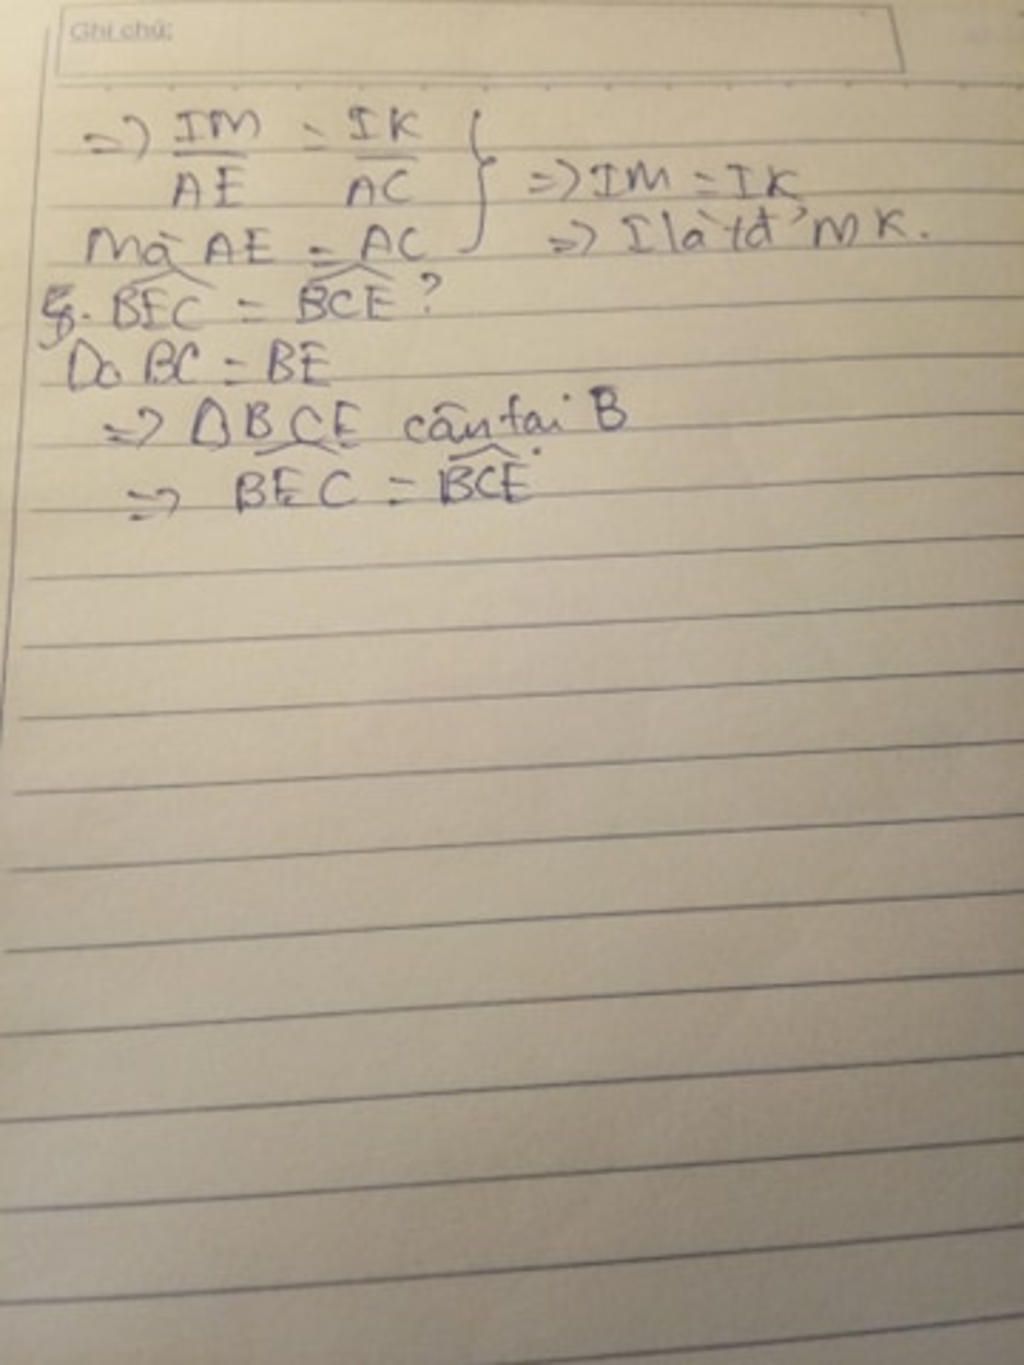 Ghi chú:
=> IM/AE = IK/AC } => IM = IK
Mà AE = AC => I là tđ' MK.
g. BEC = BCE ?
Do BC = BE
=> ΔBCE cân tại B
=> BEC = BCE